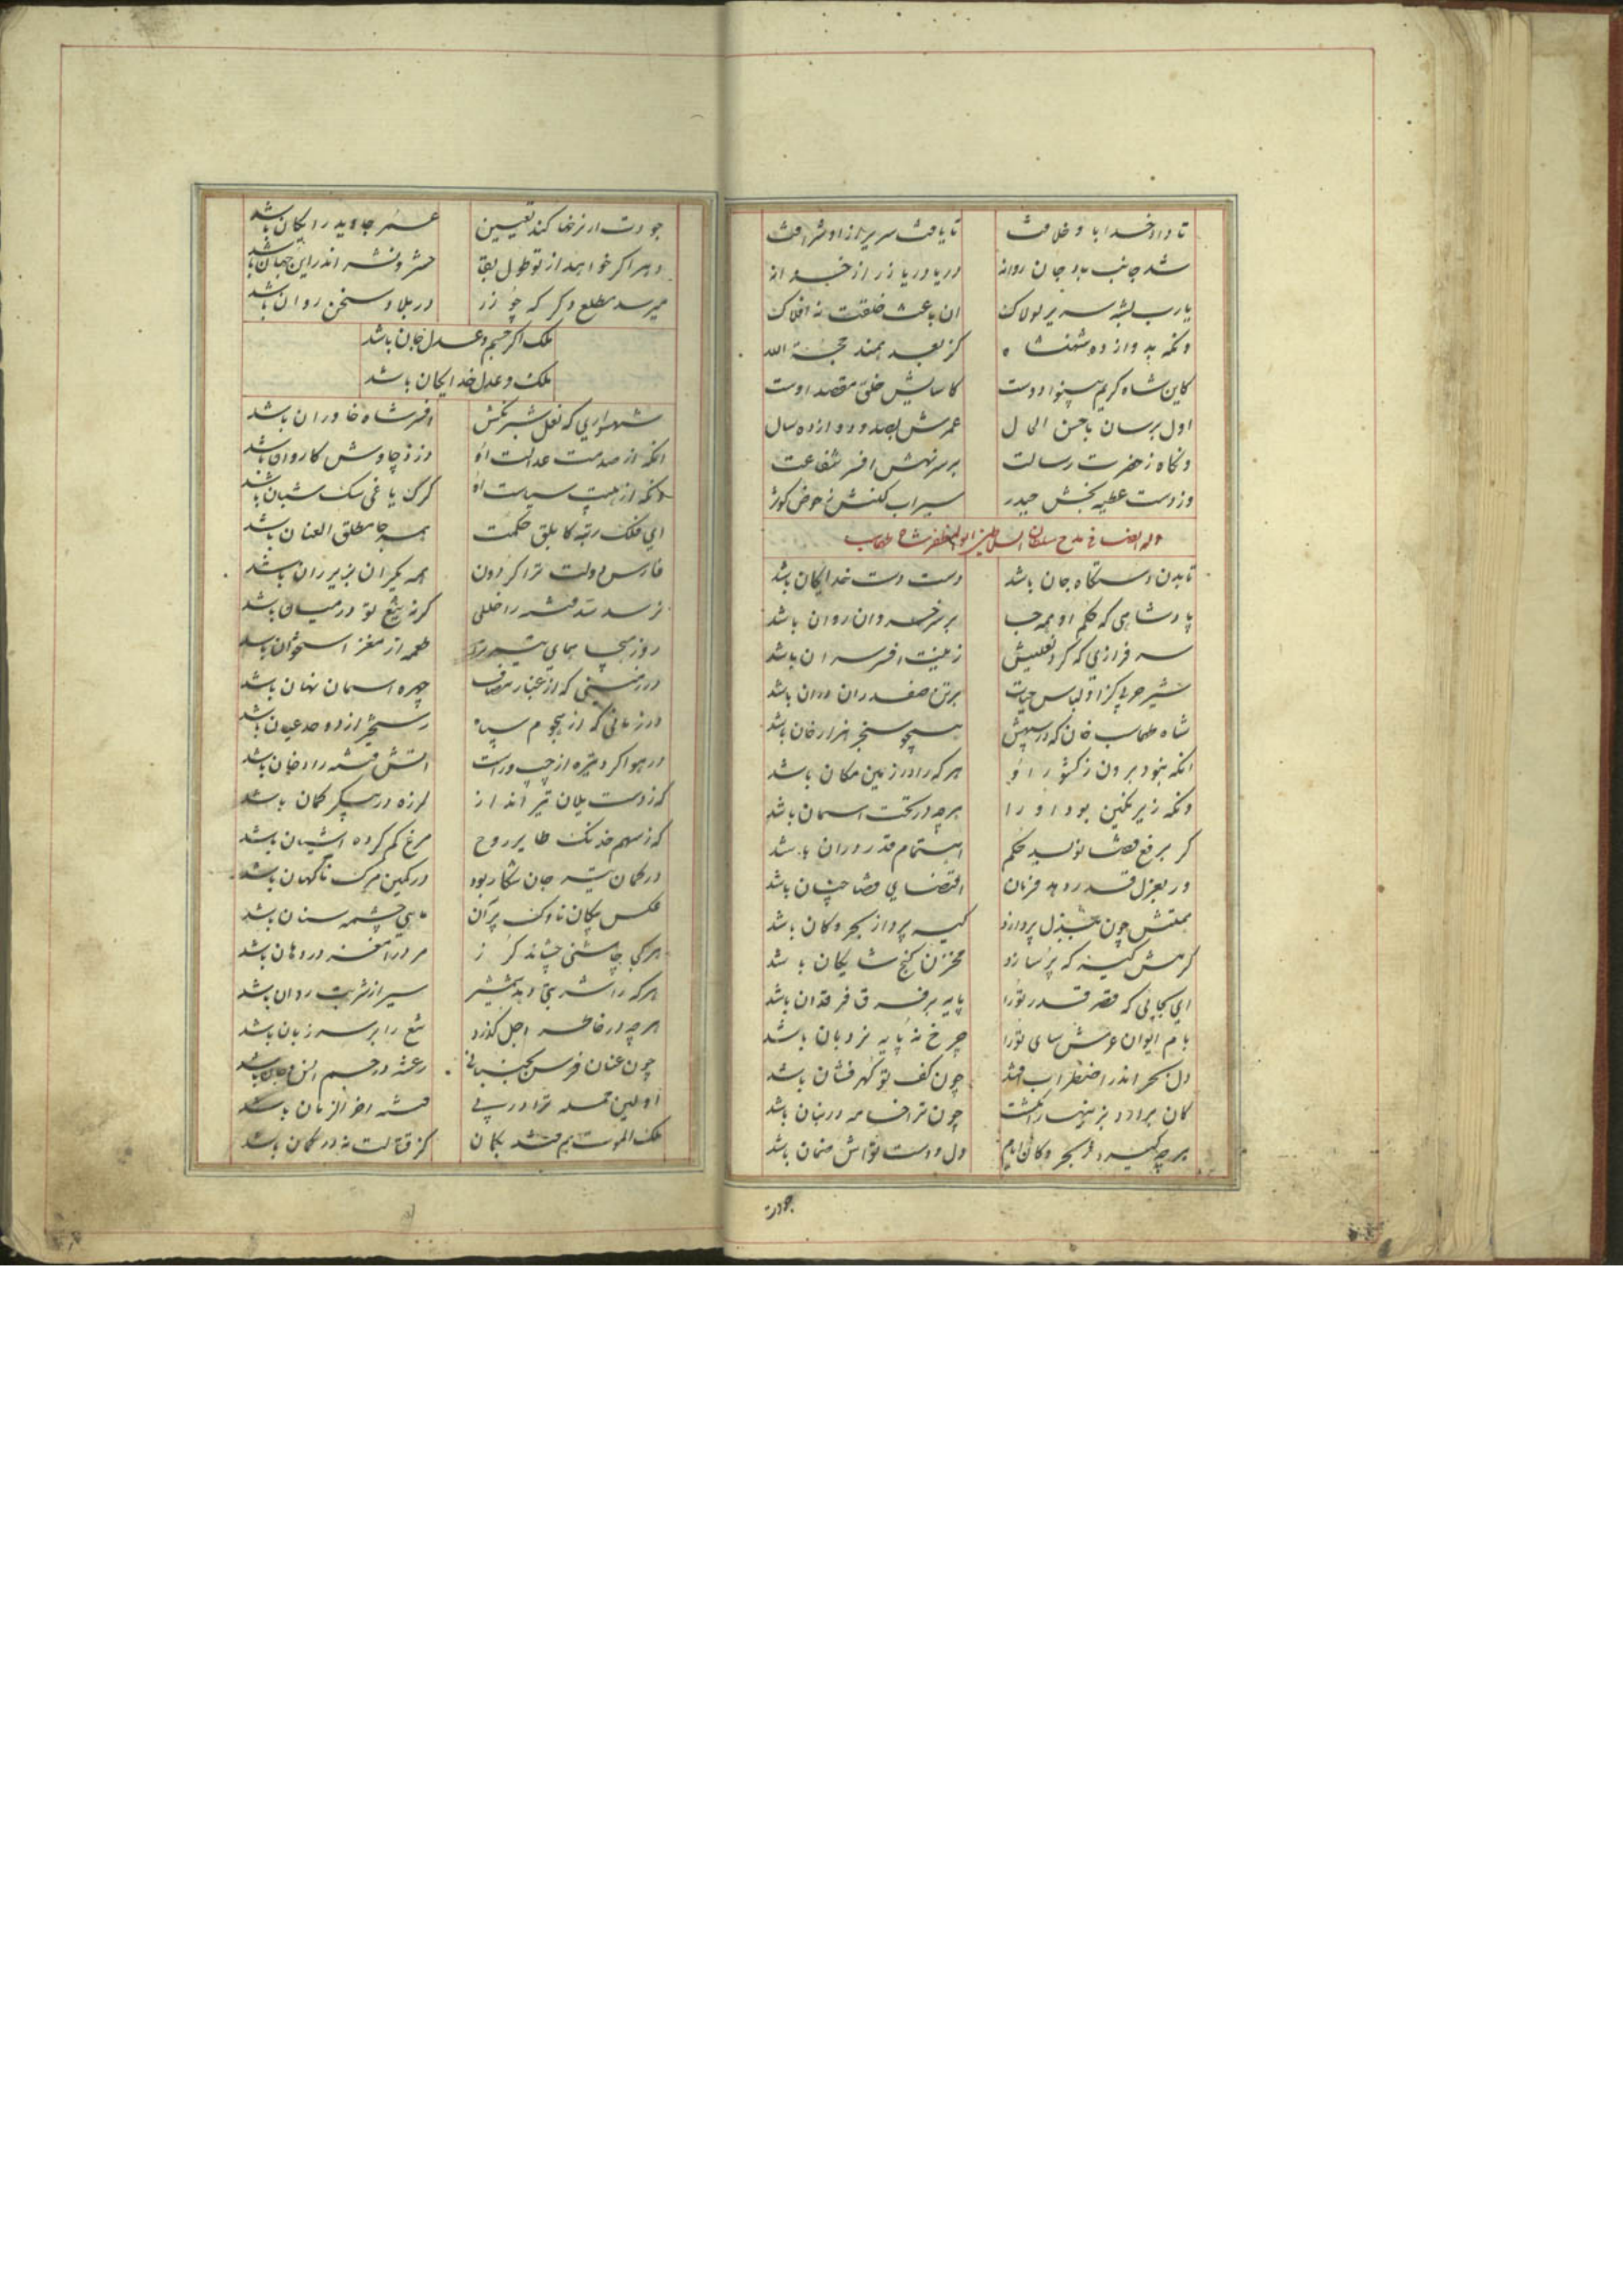 تا داد خدا با و خلافت تا یافت سریر ازو شرافت
شد جانب باد جان روانه دریا دریا زر از خزانه
یارب بشه سریر لولاک ان باعث خلقت نه افلاک
وانکه بدوازده شهنشاه کز بعد همند حجة الله
کاین شاه کریم بینوا دوست کاسایش خلق مقصد اوست
اول برسان باحسن الحال عمرش بصد و دوازده سال
وانکاه ز حضرت رسالت بر سر نهش افسر شفاعت
وز دست عطیه بخش حیدر سیراب کنش ز حوض کوثر
وله ایضا فی مدح سلطان السلاطین ابوالمظفر شاه طهماسب
تا بدن دستکاه جان باشد دست دست خدایکان باشد
پادشاهی که حکم او همه جب بر سر خسروان روان باشد
سرفرازی که کرد نعلینش زینت افسر سران باشد
شیر حربه کز او لباس حیات برتن صفدران دران باشد
شاه طهماسب خان که در سپهش همچو سنجر هزار خان باشد
انکه نبود برون ز کشور او هرکه را در زمین مکان باشد
وانکه زیر نکین بود او را هرچه در تحت اسمان باشد
کر برفع قضا نویسد حکم اهتمام قدر دران باشد
ور بعزل قدر دهد فرمان اقتضای قضا چنان باشد
همتش چون ببذل پردازد کیسه پرداز بحر و کان باشد
کرمش کیسه که پر سازد مخزن کنج شایکان باشد
ای بجایی که قصر قدر تو را پایه بر فرق فرقدان باشد
بام ایوان عرش سای تو را چرخ نه پایه نردبان باشد
دل بحر اندر اضطراب افتد چون کف تو کهر فشان باشد
کان برارد بزینهار انکشت چون ترا خامه در بنان باشد
هرچه کیرد ز بحر و کان ایام دل و دست تواش ضمان باشد
جودت
جودت ار نرخها کند تعیین عمر جاوید رایکان باشد
دهر اکر خواهد از تو طول بقا حشر و نشر اندر این جهان باشد
میرسد مطلع دکر که چو زر در بلاد سخن روان باشد
ملک اکر جسم و عدل جان باشد
ملک و عدل خدایکان باشد
شهسواری که نعل شبرنکش افسر شاه خاوران باشد
انکه از صدمت عدالت او دزد چاوش کاروان باشد
وانکه از هیبت سیاست او کرک یاغی سک شبان باشد
ای فلک رتبه کابلق حکمت همه جا مطلق العنان باشد
فارس دولت ترا کردون همه یکران بزیر ران باشد
نرسد سد فتنه را خللی کر نه تیغ تو در میان باشد
روز هیجا همای تیر ترا طعمه از مغز استخوان باشد
در زمینی که از غبار مصاف چهره اسمان نهان باشد
در زمانی که از هجوم سپاه رستخیز از دو حد عیان باشد
در هوا کرد تیره از چپ و راست اتش فتنه را دخان باشد
که ز دست یلان تیر انداز لرزه در پیکر کمان باشد
که ز سهم خدنک طایر روح مرغ کم کرده اشیان باشد
در کمان تیر جان شکار بود در کمین مرک ناکهان باشد
عکس پیکان ناوک پران ماهی چشمه سنان باشد
هرکی چاشنی چشاند کرز مر ورا مغز در دهان باشد
هرکه را شربتی دهد شمشیر سیر از شربت روان باشد
هرچه در خاطر اجل کذرد تیغ را بر سر زبان باشد
چون عنان فرس بجنبانی رعشه در جسم انس و جان باشد
اولین حمله ترا در پی فتنه اخر الزمان باشد
ملک الموت بیم فتد بکمان کز قتالت نه در کمان باشد